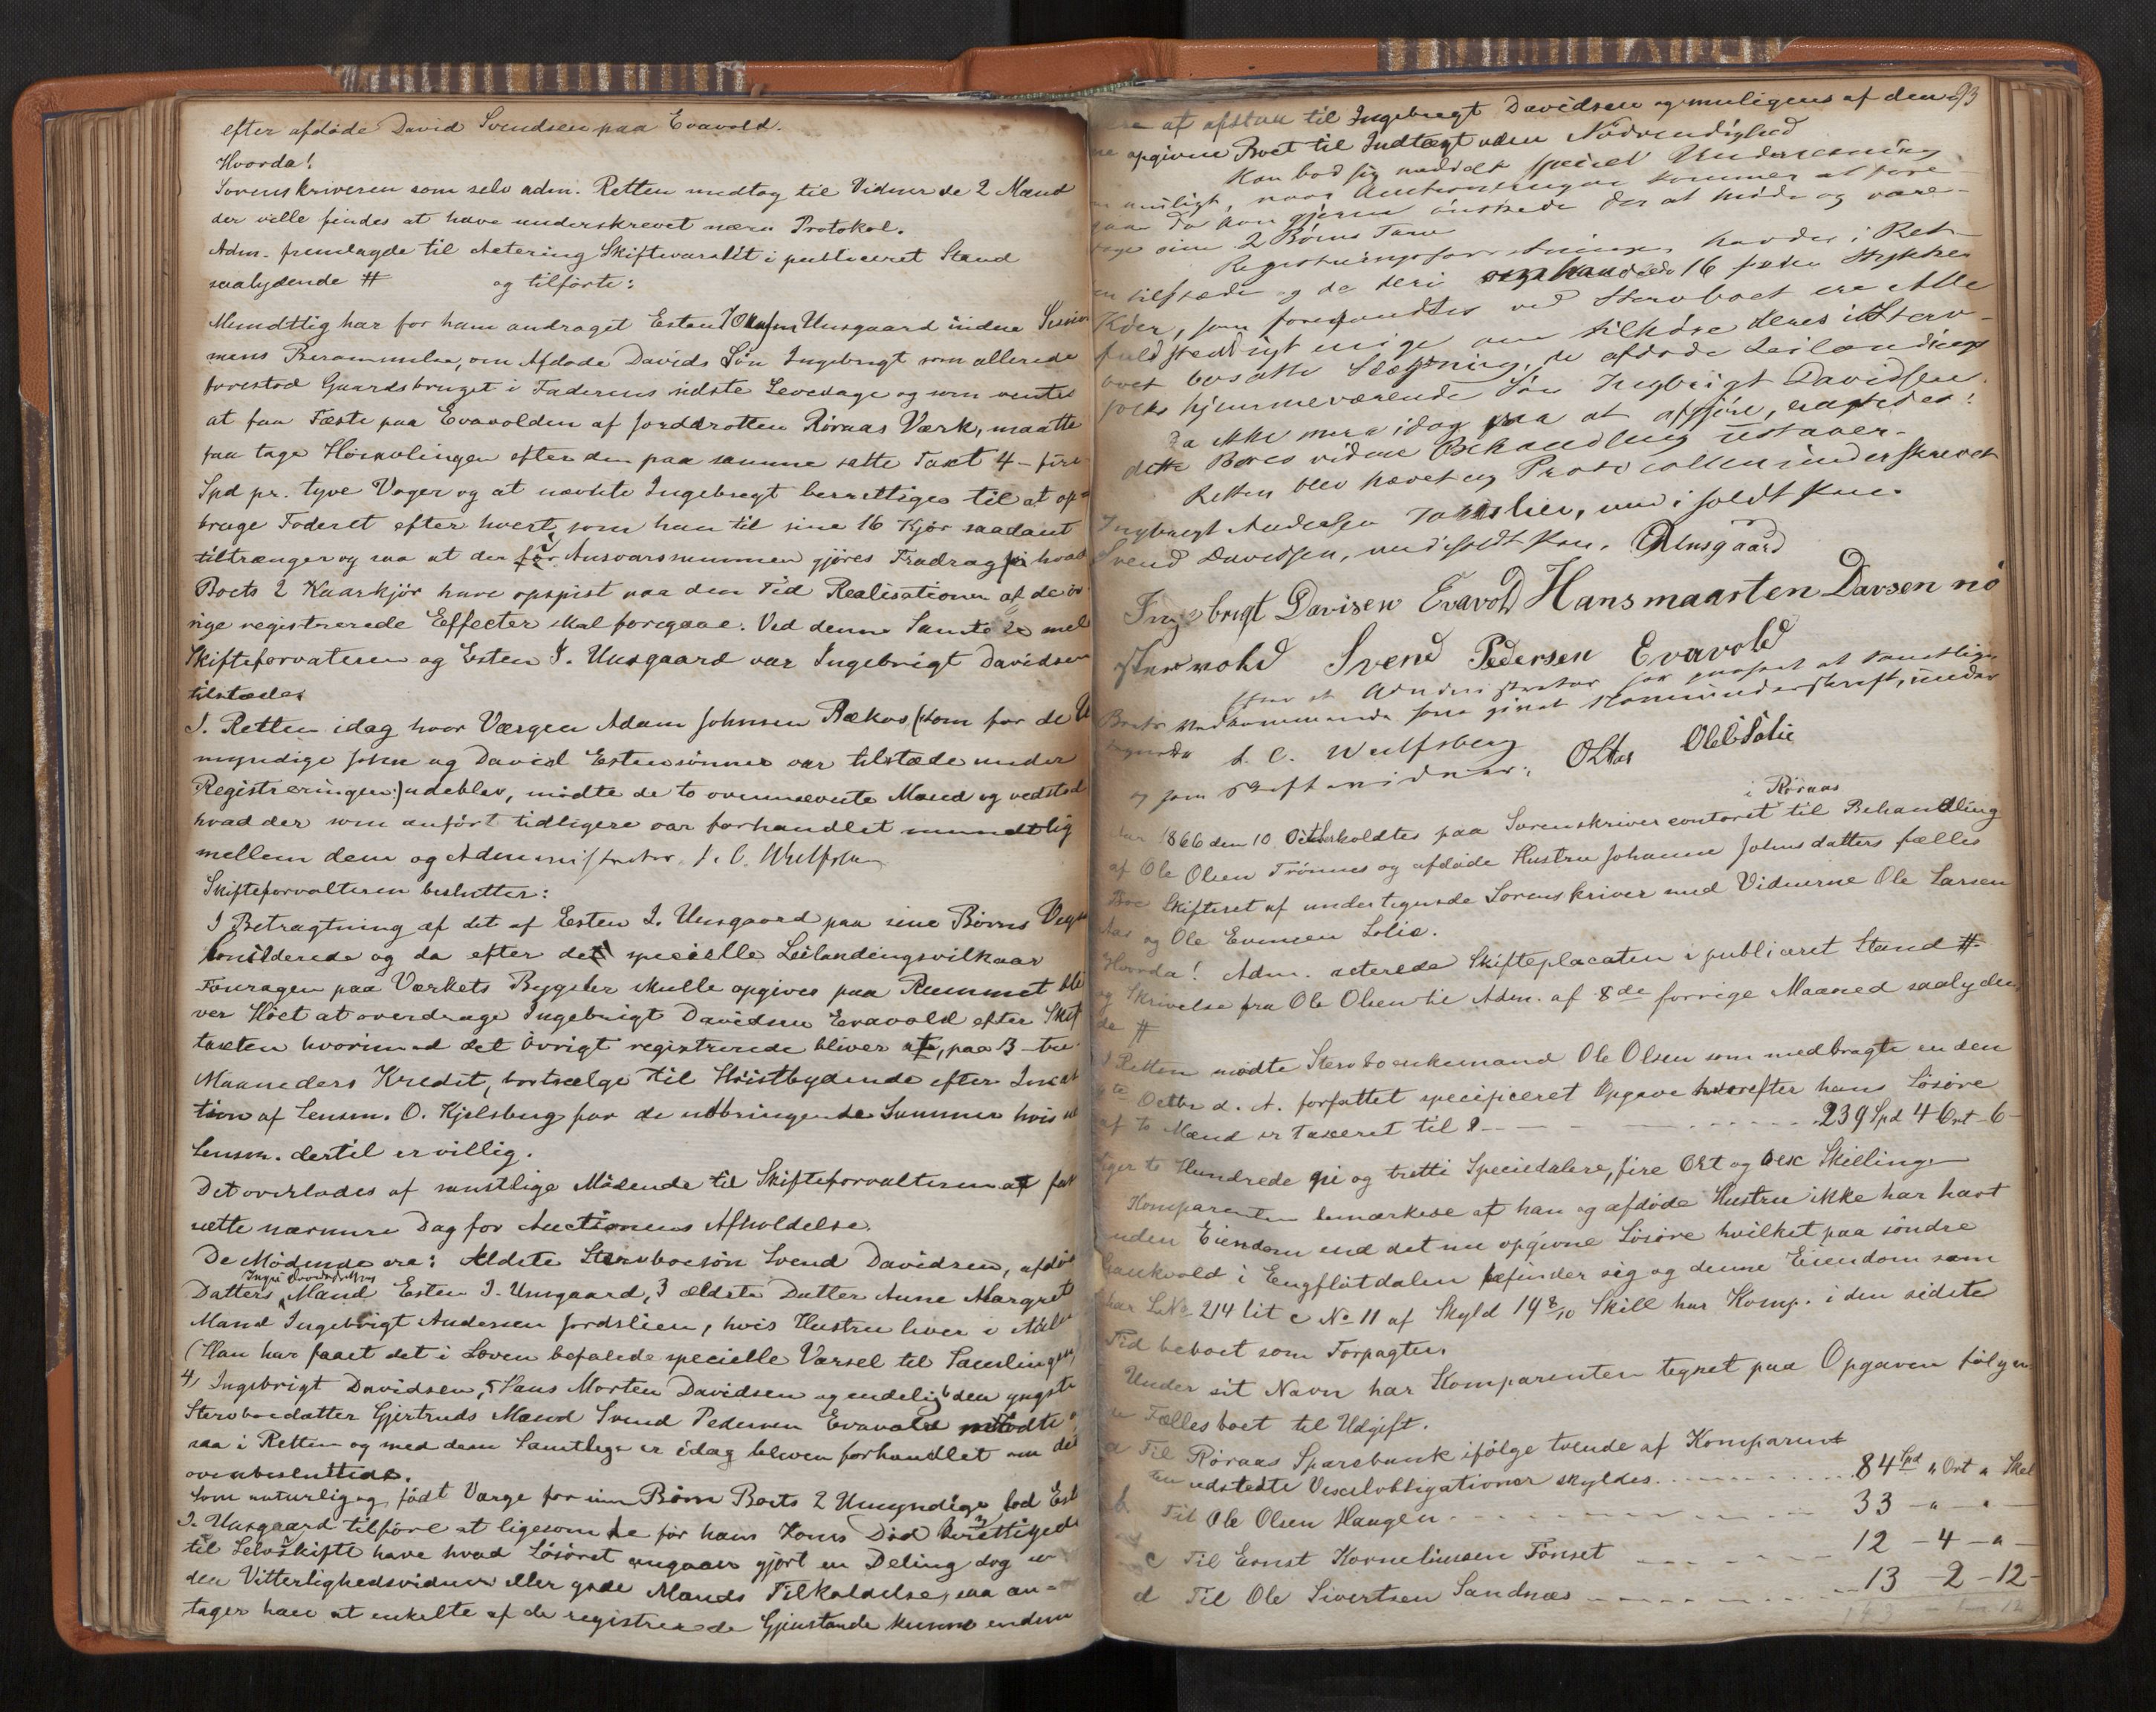 efter afdøde David Svendsen paa Evavold.
Hvorda!
Sorenskriveren som selv adm. Retten medtog til Vidner de 2 Mænd
der ville findes at have underskrevet næræ Protokol.
Adm. fremlagde til Actering Skiftevarslet i publiceret Stand
saalydende # og tilførte:
Mundtlig har for ham andraget Esten Unsgaard inden
mens Berammelse, om Afdøde Davids Søn Ingebrigt som allerede
forestod Gaardsbruget i Faderens sidste Levedage og som venter
at faa Fæste paa Evavolden af Jorddrotten Røraas Værk, maatte
faa tage Høiavlingen efter den paa samme satte Taxt 4 - fire
Spd pr. tyve Voger og at nævnte Ingebrigt berettiges til at op=
bruge Foderet efter hvert, som han til sine 16 Kjør saadant
tiltrænger og saa at der før Ansvarssummen gjøres Fradrag for hvad
Boets 2 Kaarkjør have opspist naa den Tid Realisationen af de øv
rige registrerede Effecter skal foregaae. Ved denne Samtale mel
Skifteforvalteren og Esten J. Unsgaard var Ingebrigt Davidsen
tilstæde.
I Retten idag hvor Værgen Adam Johnsen Bækos (som for de U
myndige John og David Estensønner var tilstæde under
Registreringen) udeblev, mødte de to ovennævnte Mænd og vedstod
hvad der som anført tidligere var forhandlet mundtlig
mellem dem og Administrator. J. C. Wulfsberg
Skifteforvalteren beslutter:
I Betragtning af det af Esten J. Unsgaard paa sine Børns Vegne
Considerede og da efter det specielle Leilændingsvilkaar
Fouragen paa Værkets Bygsler skulle opgives paa Rummet bli
ver Høet at overdrage Ingebrigt Davidsen Evavold efter Skif
taxten hvorimod det øvrigt registrerede bliver at, paa 3 - tre
Maaneders Kredit, bortsælge til Høistbydende efter Incas
tion af Lensm. O. Kjelsberg for de udbringende Summer hvis
Lensm. dertil er villig.
Det overlades af samtlige Mødende til Skifteforvalteren at fast
sætte nærmere Dag for Auctionens Afholdelse.
De Mødende ere: Ældste Stervboesøn Svend Davidsen, afdøde
Datters Ingri Davidsdatters Mand Esten J. Unsgaard, 3 ældste Datter Anne Margret
Mand Ingebrigt Andersen Jordslien, hvis Hustru lever i
(Han har faaet det i Loven befalede specielle Varsel til Samlingen)
4, Ingebrigt Davidsen, 5 Hans Morten Davidsen og endelig 6 den yngste
Stervboedatter Gjertruds Mand Svend Pedersen Evavold mødte
saa i Retten og med dem Samtlige er idag bleven forhandlet om det
ovenbesluttede.
Som naturlig og født Værge for sine Børn Boets 2 Umyndige lod Est
J. Unsgaard tilføre at ligesom de før hans Kones Død berettigede
til Selvskifte have hvad Løsøret angaaer gjort en Deling dog u
den Vitterlighedsvidner eller gode Mænds Tilkaldelse, saa an=
tager han at enkelte af de registrerede Gjenstande kunne endnu
93
at afstaa til Ingebrigt Davidsen og muligens af den
opgivne Boet til Indtægt uden Nødvendighed
Han bad sig meddelt speciel Underretning
muligt, naar Auctionen kommer at fore
gaae da han gjerne ønskede der at møde og vare-
tage sine 2 Børns Tarv
Registreringsforretningen havdes i Ret-
en tilstæde og de deri omhandlede 16 sexten Stykker
Kjør, som forefandtes ved Stervboet ere Alle
fuldstændigt enige om tilhøre deres i Sterv-
boet besatte Slægtning, de afdøde Leilændings
folks hjemmeværende Søn Ingebrigt Davidsen.
Da ikke mere idag var at afgjøre, eragtedes:
dette Boes videre Behandling udstaaer.
Retten blev hævet og Protocollen underskrevet
Ingebrigt Andersen Jordslien, med iholdt Pen.
Svend Davidsen, med iholdt Pen. EJUnsgaard
Ingebrigt Davisen Evavold Hans maarten Davsen nö
stervold Svend Pedersen Evavold
Boets Vedkommende have givet Haandunderskrift, under
tegnede J. C. Wulfsberg
og som Skiftevidner: OLAas OleESolie
i Røraas
Aar 1866 den 10 Octbr holdtes paa Sorenskrivercontoret til Behandling
af Ole Olsen Trønnes og afdøde Hustru Johanne Johnsdatters fælles
Boe Skifteret af undertegnede Sorenskriver med Vidnerne Ole Larsen
Aas og Ole Evensen Solie.
Hvorda! Adm. acterede Skifteplacaten i publiceret Stand #
og Skrivelse fra Ole Olsen til Adm. af 8de forrige Maaned saalyden
de #
I Retten mødte Stervboenkemand Ole Olsen som medbragte en den
Octbr d. A. forfattet specificeret Opgave hvorefter hans Løsøre
af to Mænd er taxeret til 239 Spd 4 Ort 6
siger to Hundrede ni og tretti Speciedalere, fire Ort og sex Skilling
Komparenten bemærkede at han og afdøde Hustru ikke har havt
anden Eiendom end det nu opgivne Løsøre hvilket paa søndre
Gaukvold i Engfløtdalen befinder sig og denne Eiendom som
har L.No. 214 lit c No 11 af Skyld 14 8/10 Skill har Komp. i den sidste
Tid beboet som Forpagter.
Under sit Navn har Komparenten tegnet paa Opgaven følgen
de Fællesboet til Udgift.
a Til Røraas Sparebank ifølge tvende af Komparent
en udstedte Vexelobligationer skyldes 84 Spd " Ort " Skil
b Til Ole Olsen Haugen 33 - " - " -
c Til Ernst Korneliusen Tønset 12 - 4 - " -
d Til Ole Sivertsen Sandnæs 13 - 2 - 12 -